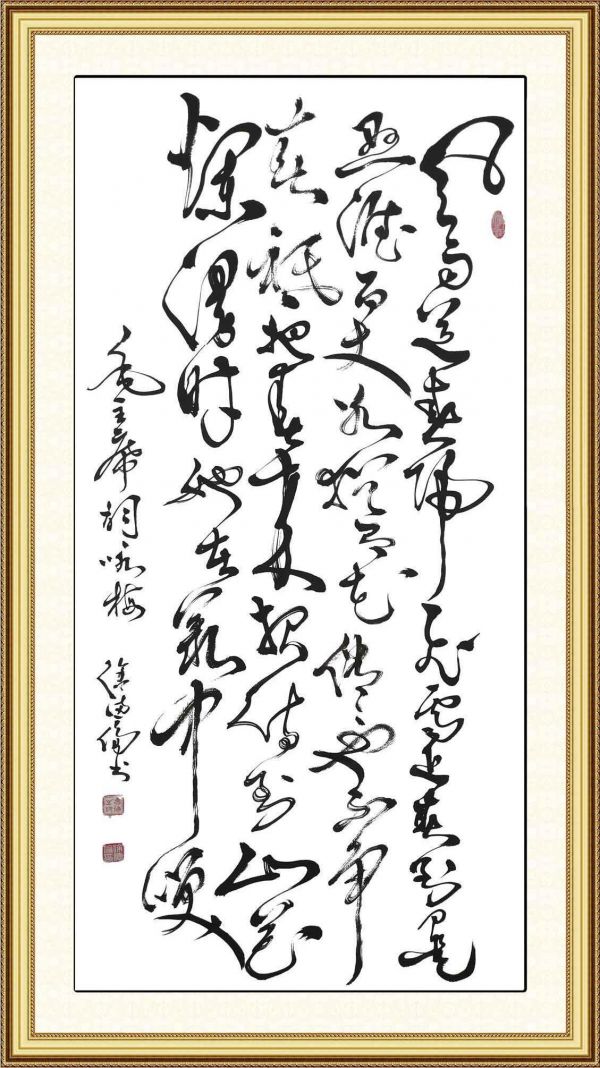 风雨送春归飞雪迎春到已是
悬崖百丈冰犹有花俏俏也不争
春祇把春来报待到山花
烂漫时她在丛中咲
毛主席词咏梅 徐